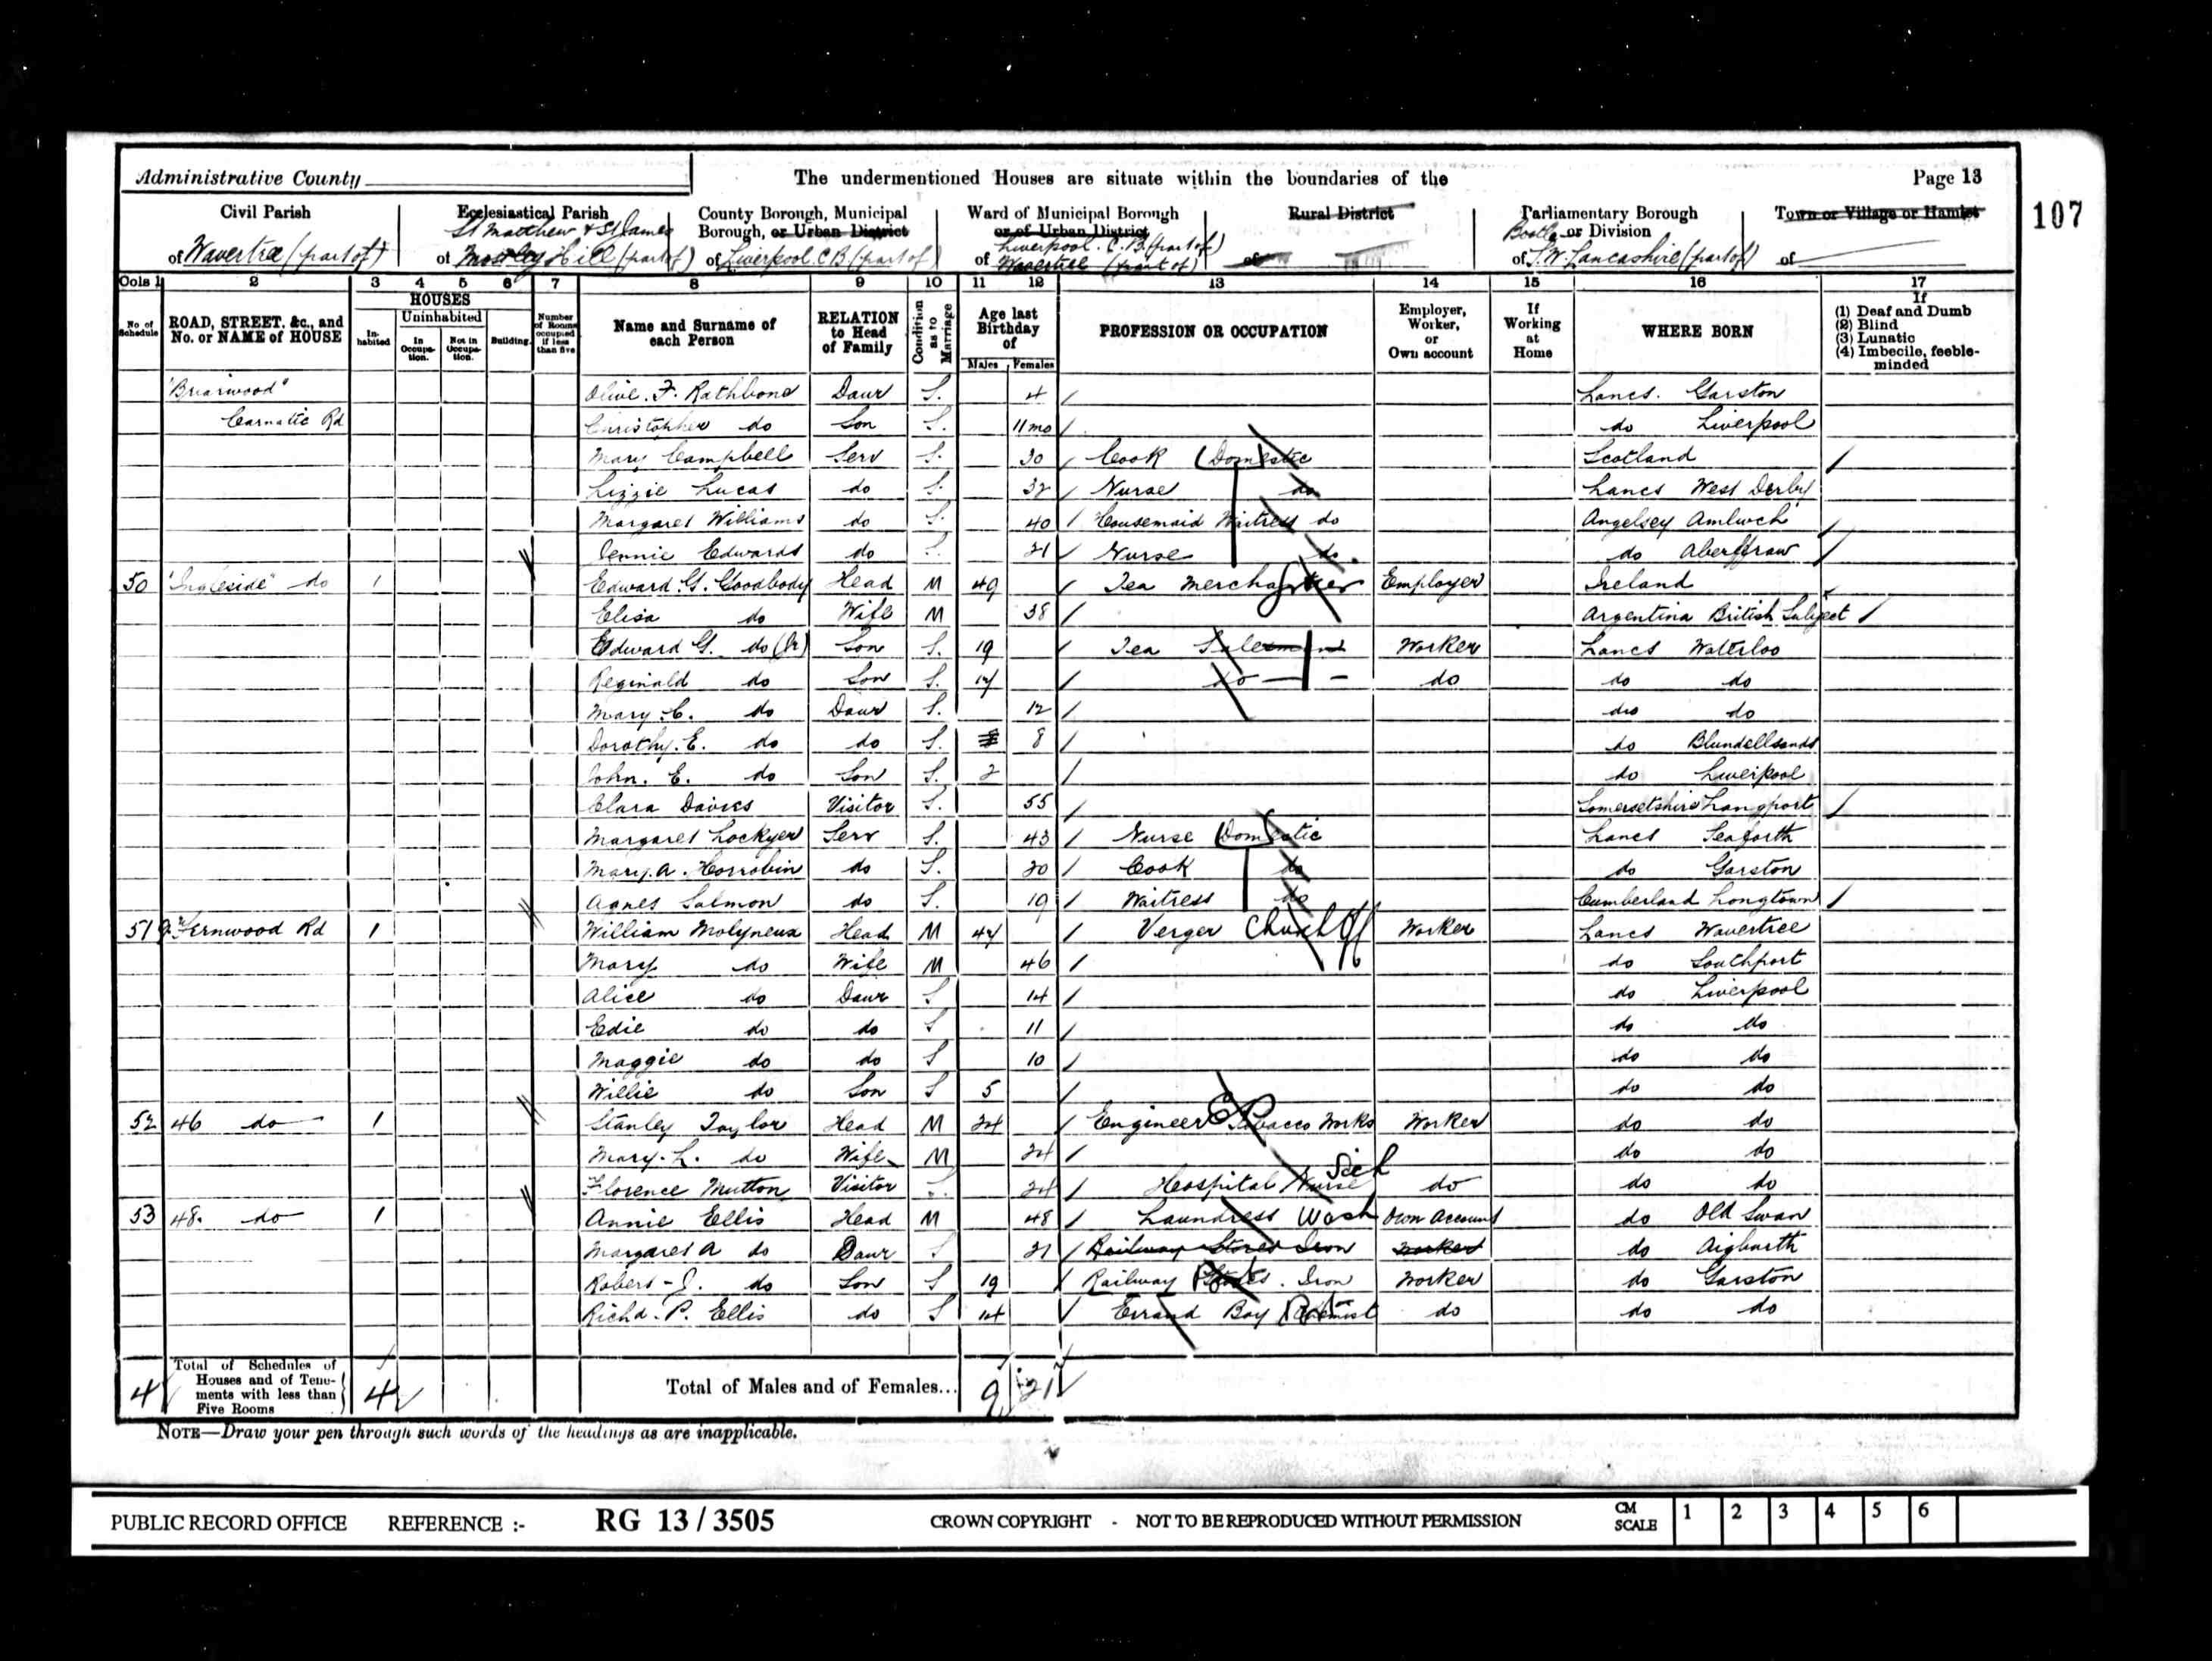 Administrative County
The undermentioned Houses are situate within the boundaries of the
Page 13
107
Civil Parish
of Wavertree (part of)
Ecclesiastical Parish
St Matthew & St James
of Mossley Hill (part of)
County Borough, Municipal
Borough, or Urban District
of Liverpool C B (part of)
Ward of Municipal Borough
or of Urban District
Liverpool. C. B. (part of)
of Wavertree (part of)
Rural District
of
Parliamentary Borough
Bootle or Division
of S.W. Lancashire (part of)
Town or Village or Hamlet
of
Cols 1 2 3 4 5 6 7 8 9 10 11 12 13 14 15 16 17
No. of Schedule
ROAD, STREET, &c., and No. or NAME of HOUSE
HOUSES
In-habited
Uninhabited
In Occupa-tion.
Not in Occupa-tion.
Building.
Number of Rooms occupied if less than five
Name and Surname of each Person
RELATION to Head of Family
Condition as to Marriage
Age last Birthday of
Males Females
PROFESSION OR OCCUPATION
Employer, Worker, or Own account
If Working at Home
WHERE BORN
If
(1) Deaf and Dumb
(2) Blind
(3) Lunatic
(4) Imbecile, feeble-minded
"Briarwood" Olive. F. Rathbone Daur S. 4 Lancs. Garston
Carnatic Rd Christopher do Son S. 11 mo do Liverpool
Mary Campbell Serv S. 30 Cook (Domestic) Scotland
Lizzie Lucas do S. 32 Nurse do Lancs West Derby
Margaret Williams do S. 40 Housemaid Waitress do Angelsey Amlwch
Jennie Edwards do S. 21 Nurse do do Aberffraw
50 "Ingleside" do 1 Edward. G. Goodbody Head M 49 Tea Merchant Employer Ireland
Elisa do Wife M 38 Argentina British Subject
Edward G. do (Jr) Son S. 19 Tea Salesman Worker Lancs Waterloo
Reginald do Son S. 17 do do do do
Mary. C. do Daur S. 12 do do
Dorothy. E. do do S. 8 do Blundellsands
John. E. do Son S. 2 do Liverpool
Clara Davies Visitor S. 55 Somersetshire Langport
Margaret Lockyer Serv S. 43 Nurse (Domestic) Lancs Seaforth
Mary. A. Horrobin do S. 20 Cook do do Garston
Agnes Salmon do S. 19 Waitress do Cumberland Longtown
51 Fernwood Rd 1 William Molyneux Head M 44 Verger Church Worker Lancs Wavertree
Mary do Wife M 46 do Southport
Alice do Daur S 14 do Liverpool
Edie do do S 11 do do
Maggie do do S 10 do do
Willie do Son S 5 do do
52 46 do 1 Stanley Taylor Head M 24 Engineer Tobacco Works Worker do do
Mary. L. do Wife M 24 do do
Florence Mutton Visitor S. 24 Hospital Nurse Sick do do do
53 48. do 1 Annie Ellis Head M 48 Laundress Wash Own Account do Old Swan
Margaret A do Daur S 21 Railway Stores Iron Worker do Aigburth
Robert J. do Son S 19 Railway Stores. Iron Worker do Garston
Richd. P. Ellis do S 14 Errand Boy Chemist do do do
4 Total of Schedules of Houses and of Tene-ments with less than Five Rooms 4 Total of Males and of Females... 9 21
NOTE—Draw your pen through such words of the headings as are inapplicable.
PUBLIC RECORD OFFICE REFERENCE :- RG 13 / 3505 CROWN COPYRIGHT - NOT TO BE REPRODUCED WITHOUT PERMISSION CM SCALE 1 2 3 4 5 6